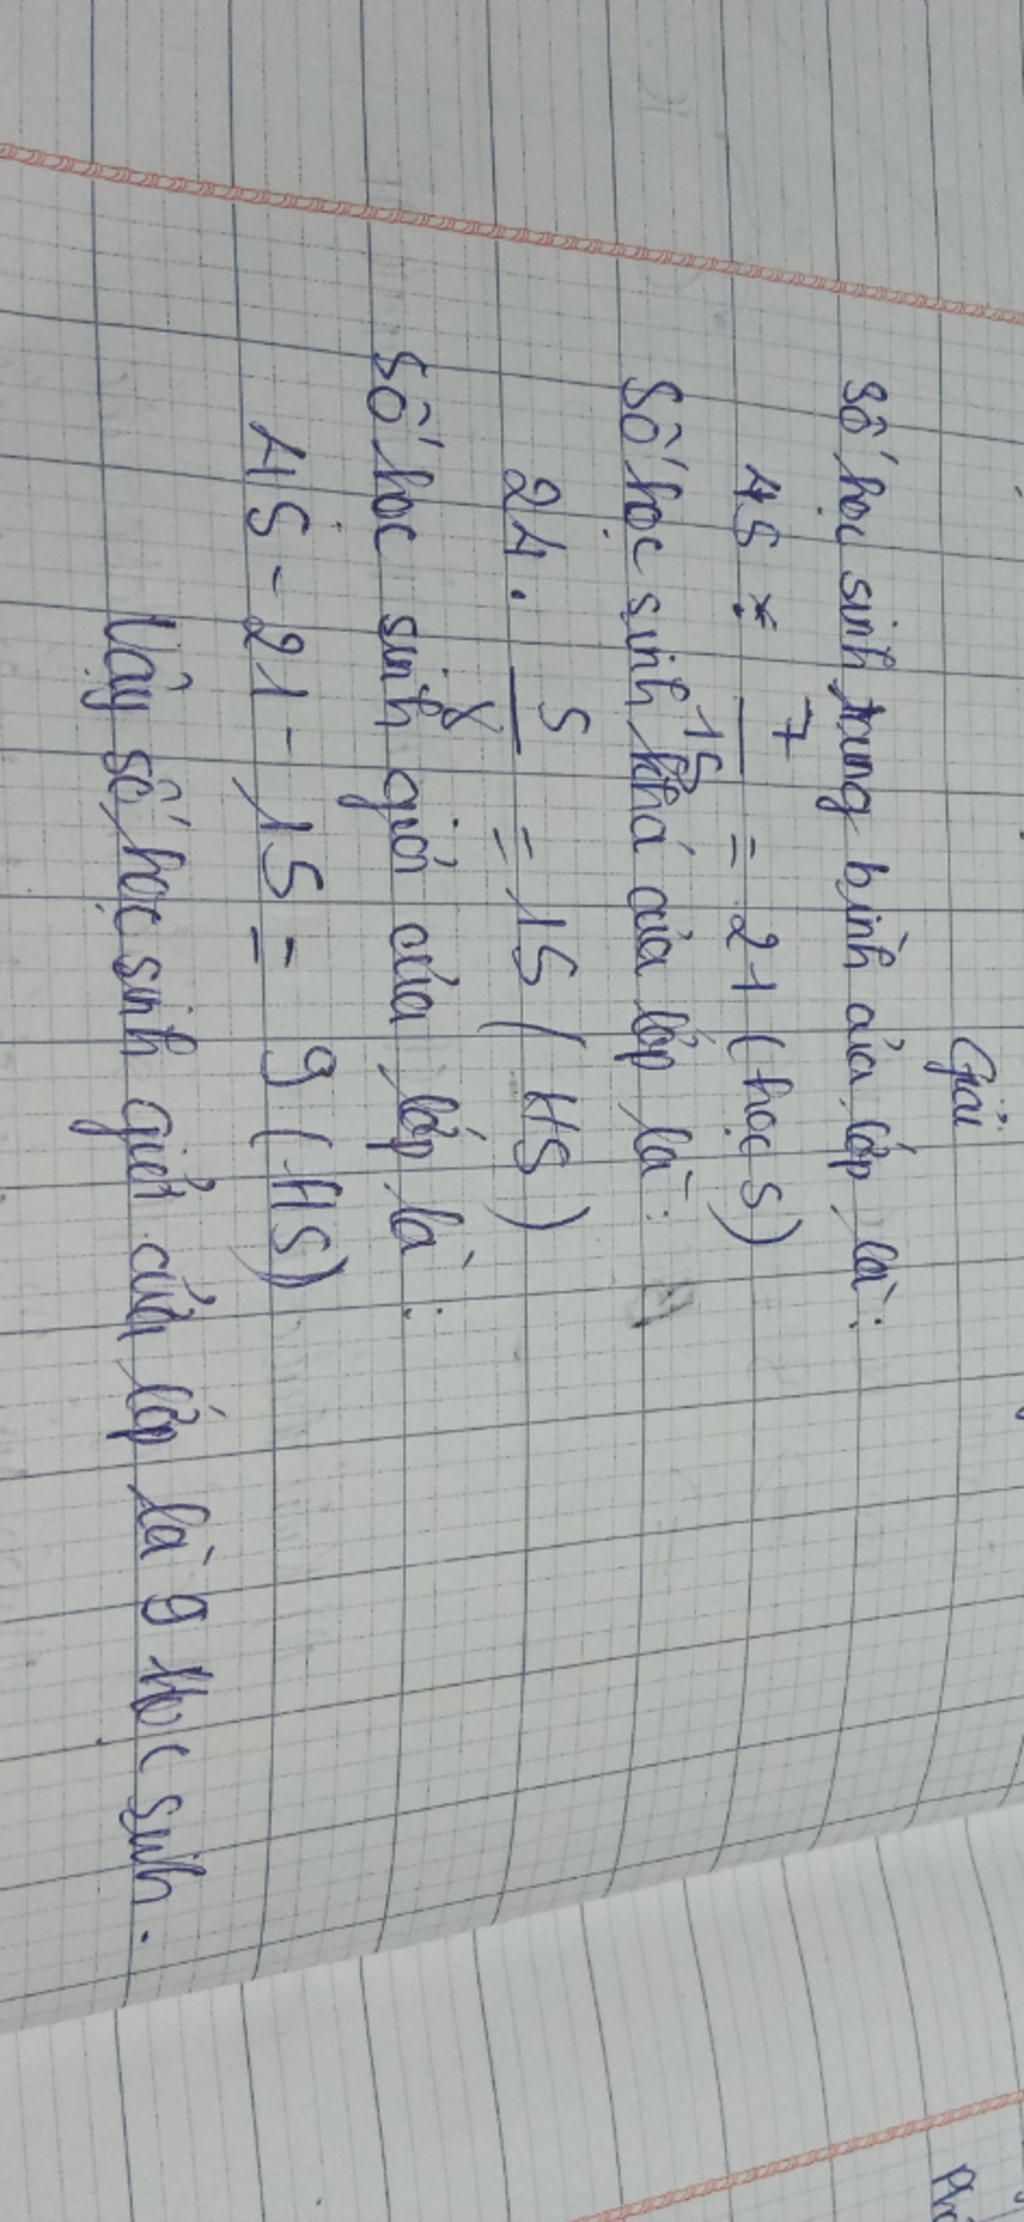 Giải
Số học sinh trung bình của lớp là:
45 . 7/15 = 21 (học S)
Số học sinh khá của lớp là:
24 . 5/8 = 15 ( HS )
Số học sinh giỏi của lớp là :
45 - 21 - 15 = 9 ( HS )
Vậy số học sinh giỏi của lớp là 9 Học sinh.